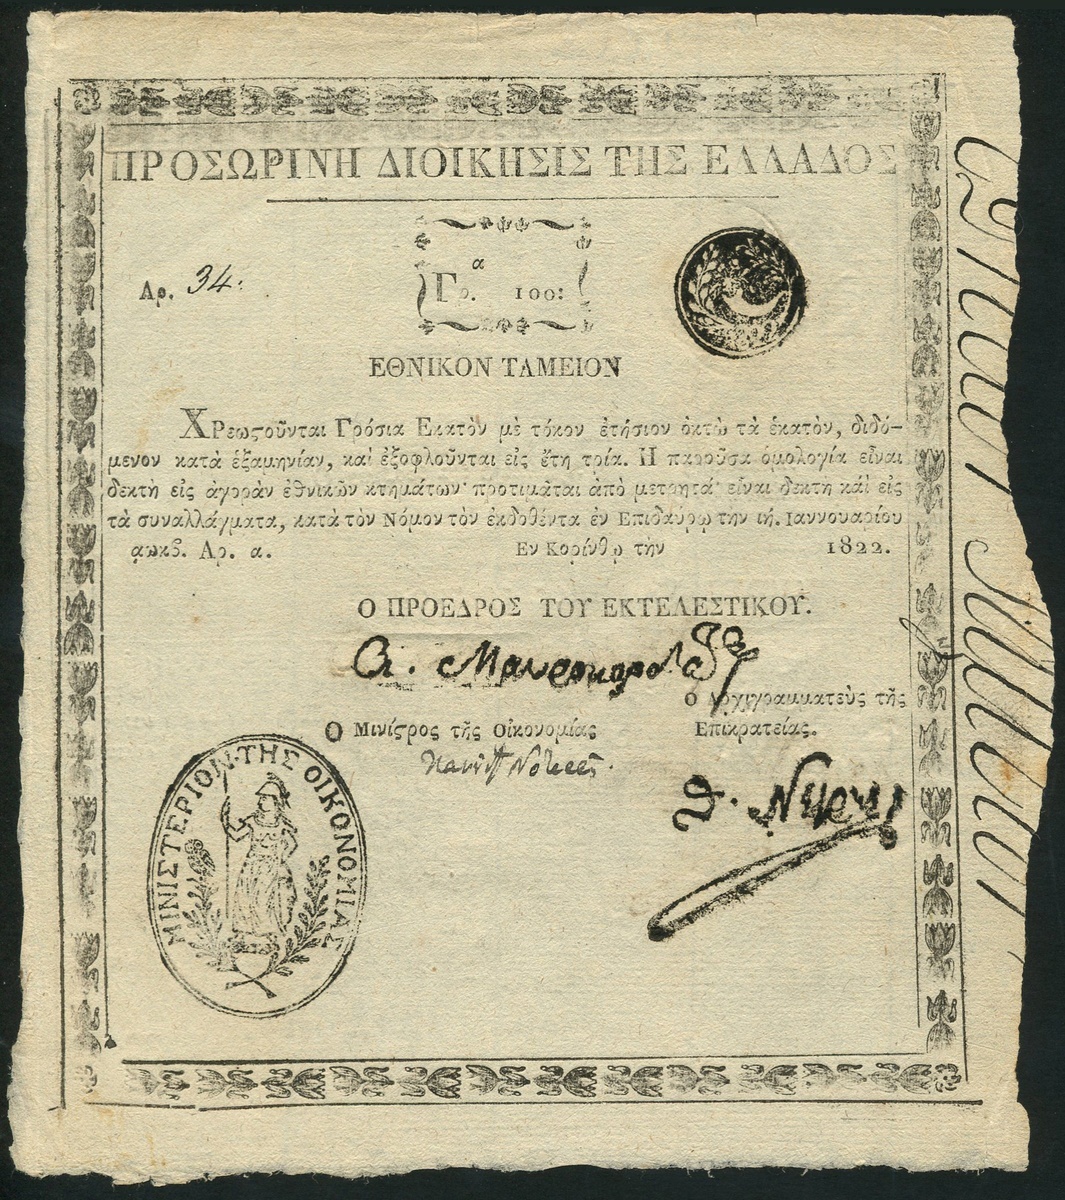 ΠΡΟΣΩΡΙΝΗ ΔΙΟΙΚΗΣΙΣ ΤΗΣ ΕΛΛΑΔΟΣ
Αρ. 34.
Γρ.α 100:
ΕΘΝΙΚΟΝ ΤΑΜΕΙΟΝ
ΧΡεωϛοῦνται Γρόσια Εκατὸν μὲ τόκον ἐτήσιον ὀκτὼ τὰ ἑκατὸν, διδό-
μενον κατὰ ἑξαμηνίαν, καὶ ἐξοφλοῦνται εἰς ἔτη τρία. Η παροῦσα ὁμολογία εἶναι
δεκτὴ εἰς ἀγορὰν ἐθνικῶν κτημάτων· προτιμᾶται ἀπὸ μετρητά· εἶναι δεκτὴ κάὶ εἰς
τὰ συναλλάγματα, κατὰ τὸν Νόμον τὸν ἐκδοθέντα ἐν Επιδαύρῳ τὴν ιή. Ιαννουαρίου
αωκβ. Αρ. α. Εν Κορίνθῳ τὴν 1822.
Ο ΠΡΟΕΔΡΟΣ ΤΟΥ ΕΚΤΕΛΕΣΤΙΚΟΥ.
Α. Μαυροκορδατος
Ο Αρχιγραμματεὺς τῆς
Επικρατείας.
Ο Μινίϛρος τῆς Οἰκονομίας
Πανȣτ Νοταρας.
Θ. Νέγρης
ΜΙΝΙΣΤΕΡΙΟΝ ΤΗΣ ΟΙΚΟΝΟΜΙΑΣ